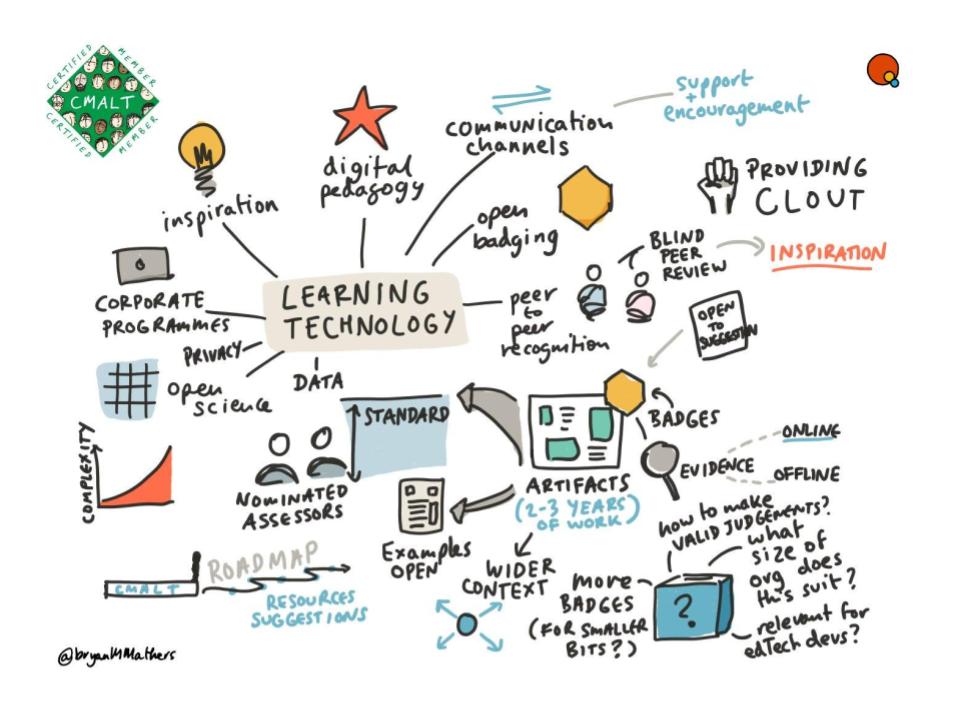 CERTIFIED
MEMBER
CMALT
CERTIFIED
MEMBER
inspiration
digital
pedagogy
communication
channels
support
+
encouragement
open
badging
PROVIDING
CLOUT
BLIND
PEER
REVIEW
INSPIRATION
CORPORATE
PROGRAMMES
LEARNING
TECHNOLOGY
peer
to
peer
recognition
OPEN
TO
SUGGESTION
PRIVACY
open
science
DATA
STANDARD
BADGES
COMPLEXITY
NOMINATED
ASSESSORS
ARTIFACTS
(2-3 YEARS
OF WORK)
EVIDENCE
ONLINE
OFFLINE
Examples
OPEN
WIDER
CONTEXT
how to make
VALID JUDGEMENTS?
what
size of
org does
this suit?
more
BADGES
(FOR SMALLER
BITS?)
?
relevant for
edTech devs?
CMALT
ROADMAP
RESOURCES
SUGGESTIONS
@bryanMMathers